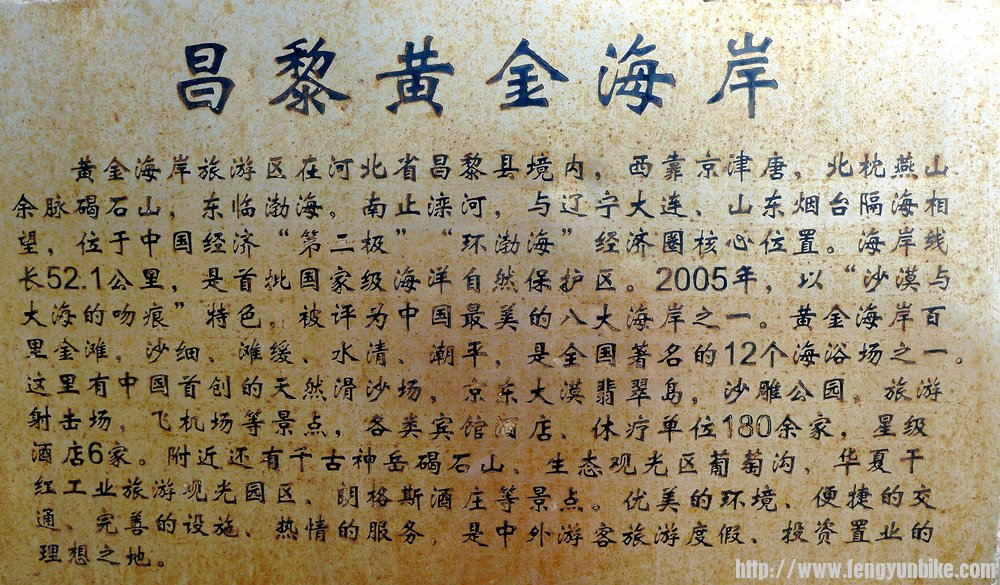 昌黎黄金海岸
黄金海岸旅游区在河北省昌黎县境内，西靠京津唐，北枕燕山
余脉碣石山，东临渤海，南止滦河，与辽宁大连、山东烟台隔海相
望，位于中国经济“第二极”“环渤海”经济圈核心位置。海岸线
长52.1公里，是首批国家级海洋自然保护区。2005年，以“沙漠与
大海的吻痕”特色，被评为中国最美的八大海岸之一。黄金海岸百
里金滩，沙细、滩缓、水清、潮平，是全国著名的12个海浴场之一。
这里有中国首创的天然滑沙场，京东大漠翡翠岛，沙雕公园，旅游
射击场，飞机场等景点，各类宾馆酒店、休疗单位180余家，星级
酒店6家。附近还有千古神岳碣石山、生态观光区葡萄沟，华夏干
红工业旅游观光园区、朗格斯酒庄等景点。优美的环境、便捷的交
通、完善的设施、热情的服务，是中外游客旅游度假、投资置业的
理想之地。
http://www.fengyunbike.com